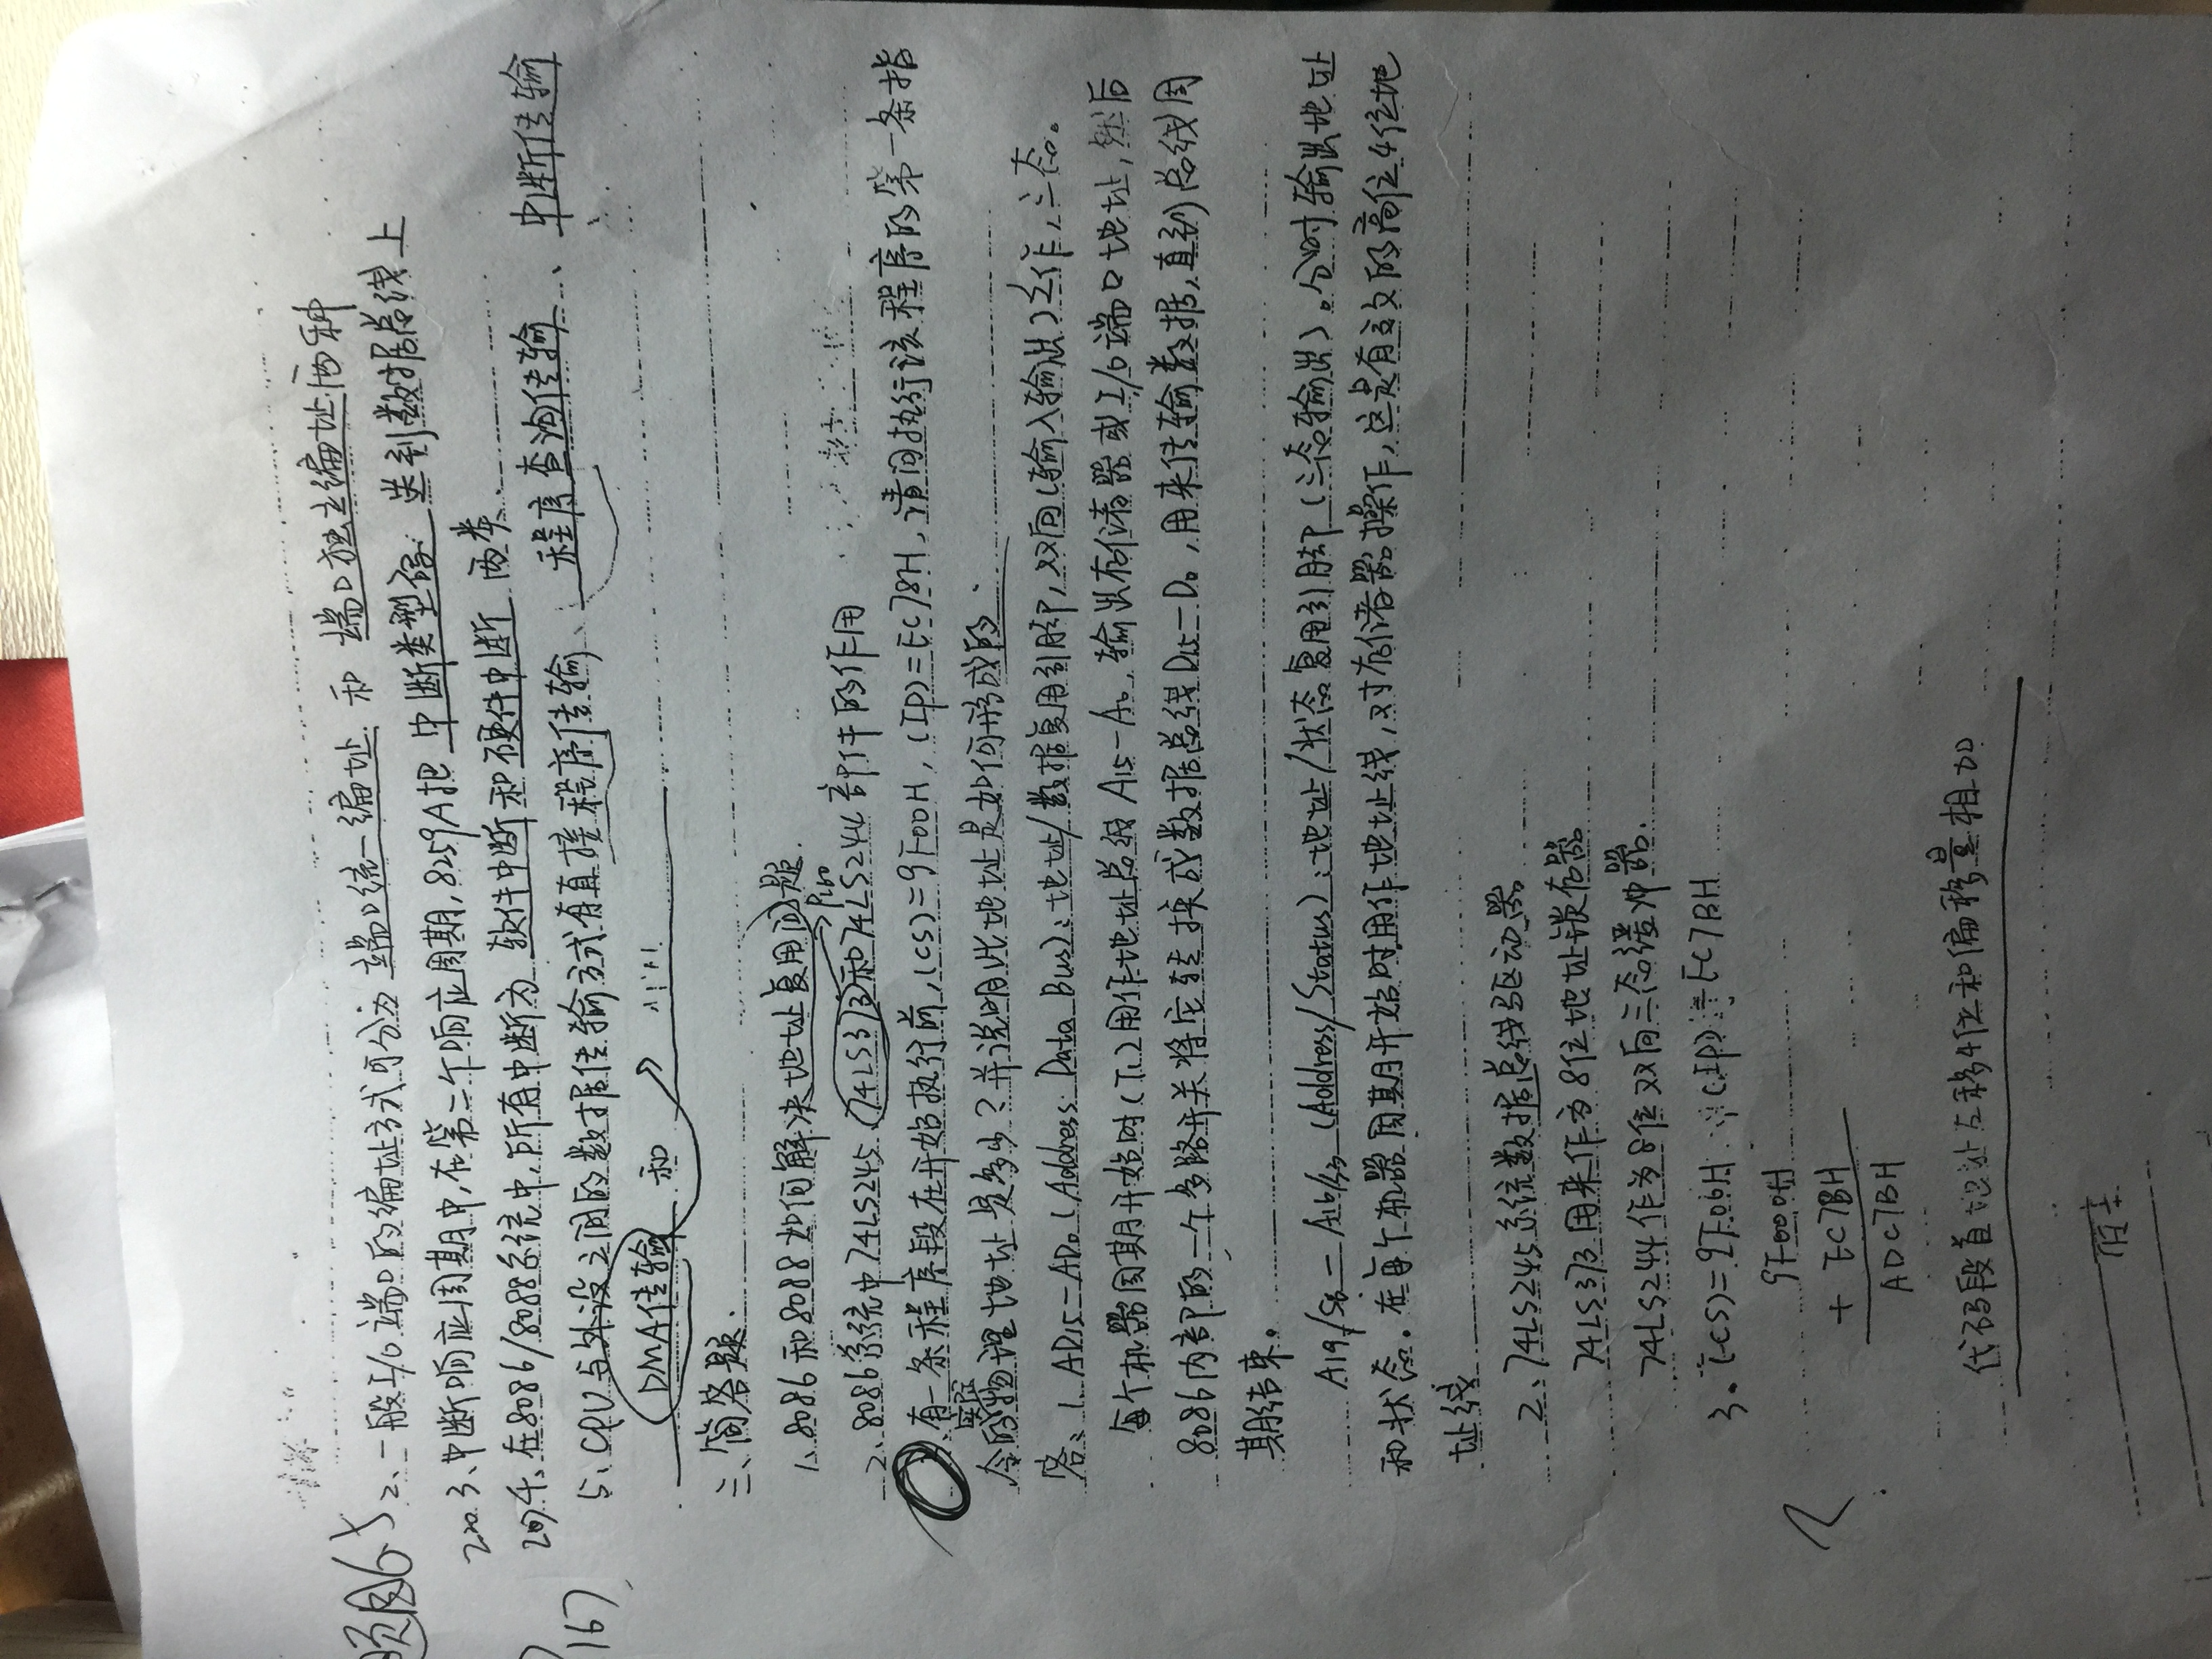 2、一般I/O端口的编址方式可分为 端口统一编址 和 端口独立编址 两种
220 3、中断响应周期中,在第二个响应周期,8259A把 中断类型码 送到数据总线上
207 4、在8086/8088系统中,所有中断为 软件中断 和 硬件中断 两类.
167
5、CPU与外设之间的数据传输方式有直接程序传输、 程序查询传输 、 中断传输
DMA传输 和
三、简答题.
1、8086和8088如何解决地址复用问题.
P160
2、8086系统中74LS245、74LS373和74LS244部件的作用
、有一条程序段在开始执行前,(CS)=9F00H,(IP)=EC78H,请问执行该程序的第一条指
实际
令的物理地址是多少?并说明此地址是如何形成的.
答:1、AD15—AD0(Address Data Bus):地址/数据复用引脚,双向(输入输出)工作,三态。
每个机器周期开始时(T1)用作地址总线A15—A0,输出存储器或I/O端口地址,然后
8086内部的一个多路开关将它转换成数据总线D15—D0,用来传输数据,直到总线周
期结束。
A19/S6—A16/S3(Address/Status):地址/状态复用引脚(三态输出)。分时输出地址
和状态。在每个机器周期开始时用作地址线,对存储器操作,这是有效的高位4位地
址线
2、74LS245系统数据总线驱动器
74LS373用来作为8位地址锁存器
74LS244作为8位双向三态缓冲器.
3. (CS)=9F00H (IP)=EC7BH
9F000H
+ EC7BH
ADC7BH
代码段首地址左移4位和偏移量相加